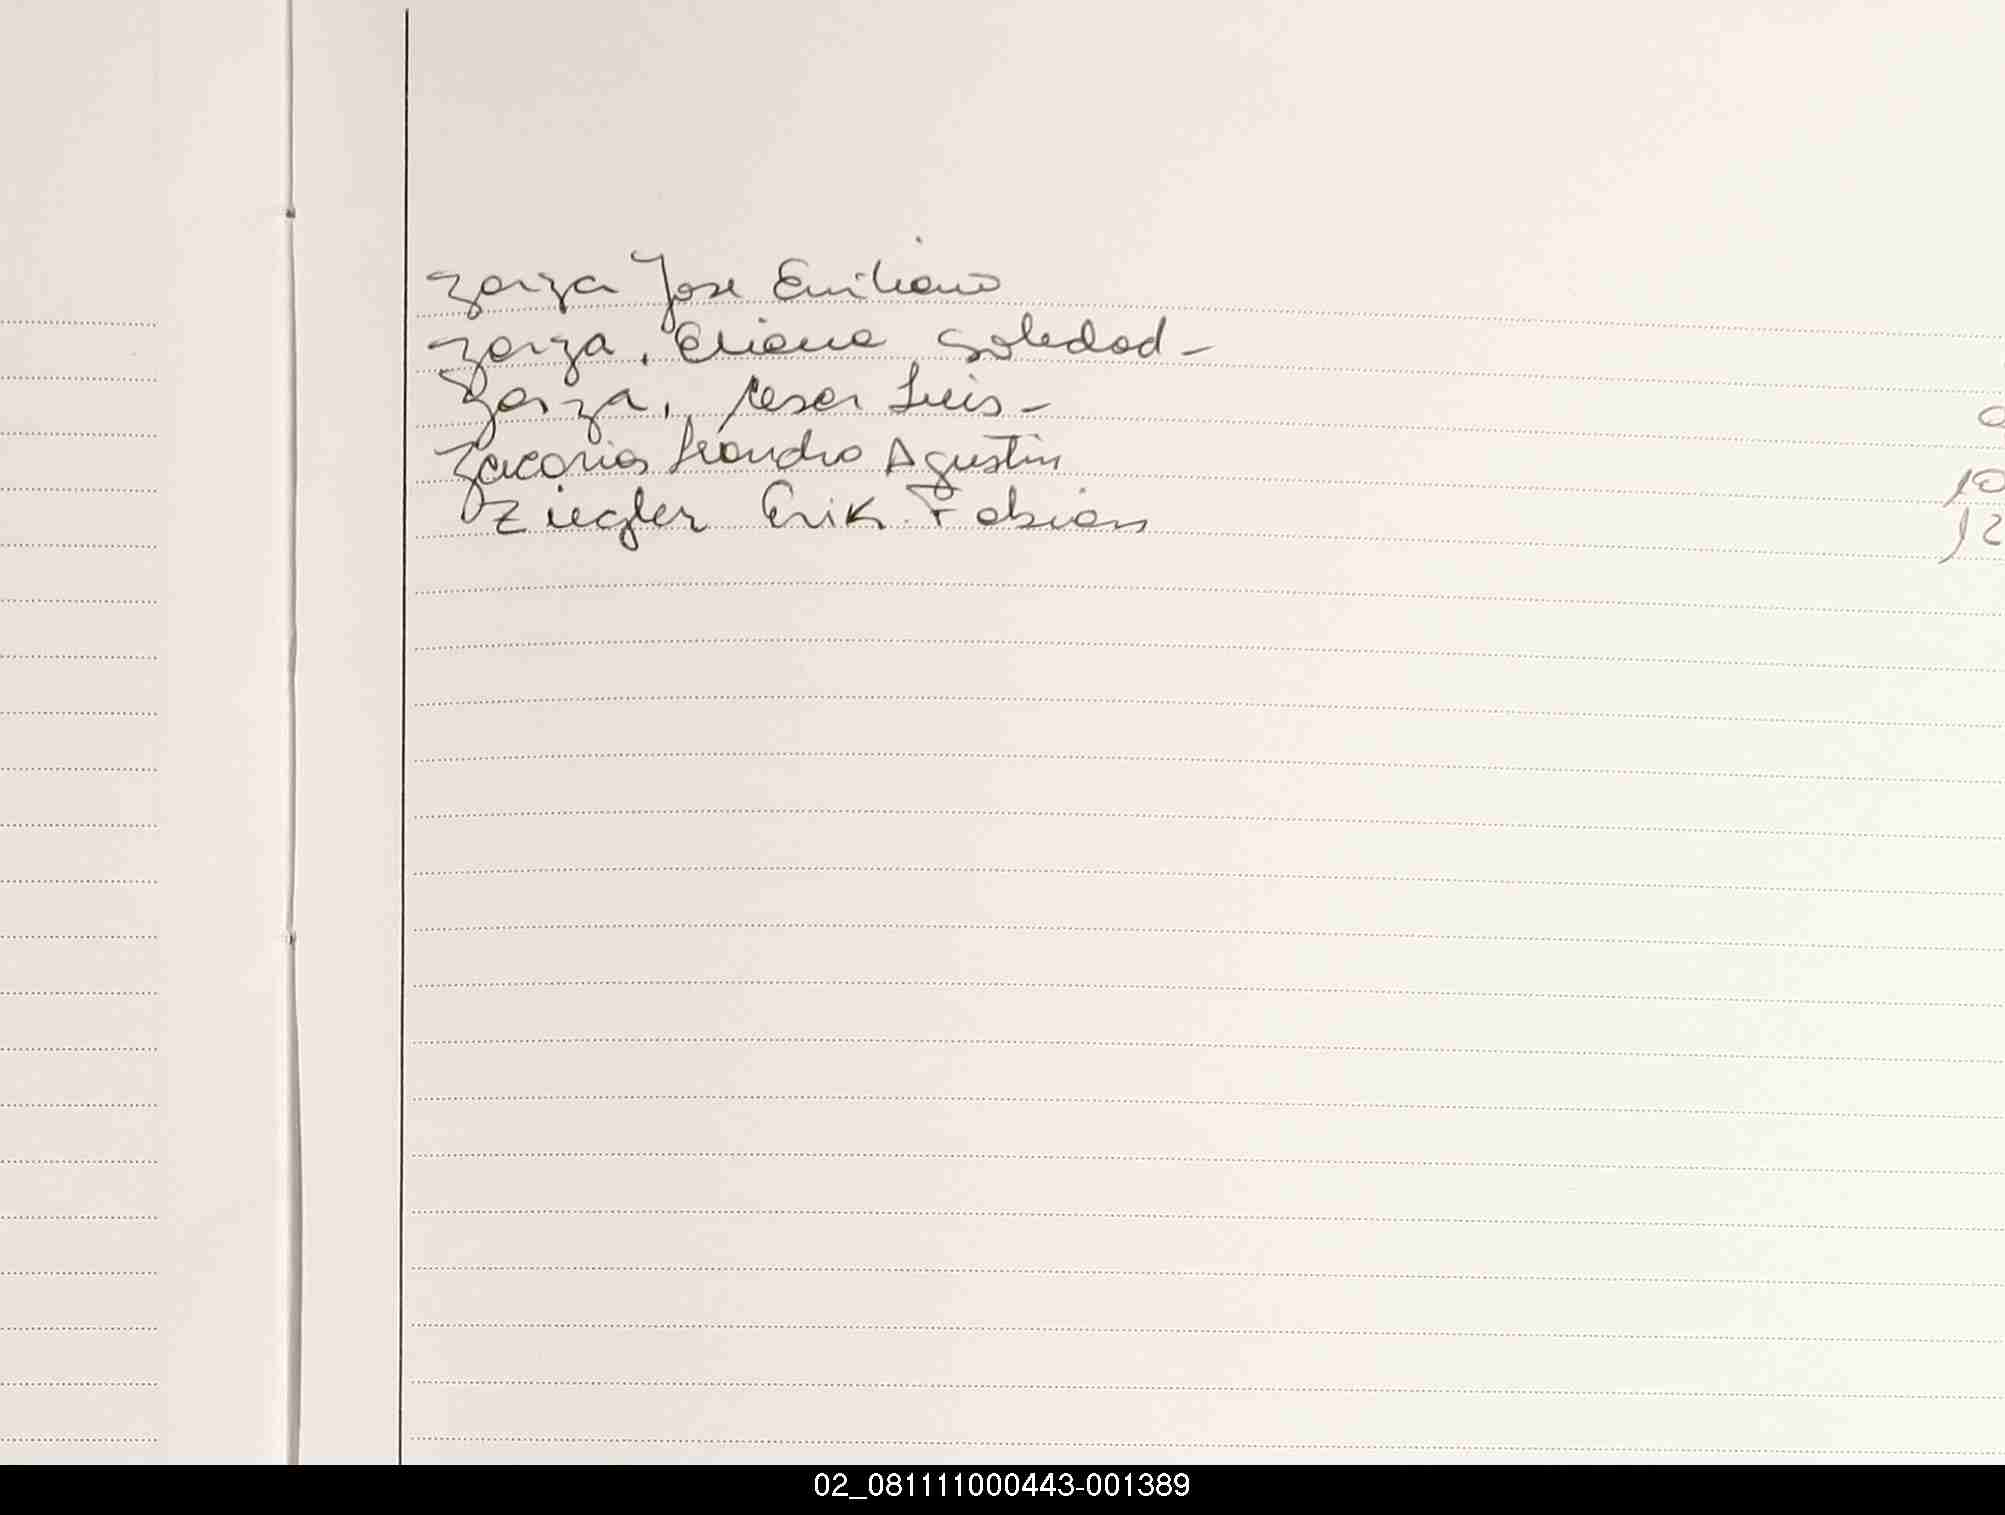 Zarza Jose Emiliano
Zarza, Eliana Soledad -
Zarza, Cesar Luis -
Zacarias Leandro Agustin 10
Ziegler Erik Fabian 12
02_081111000443-001389